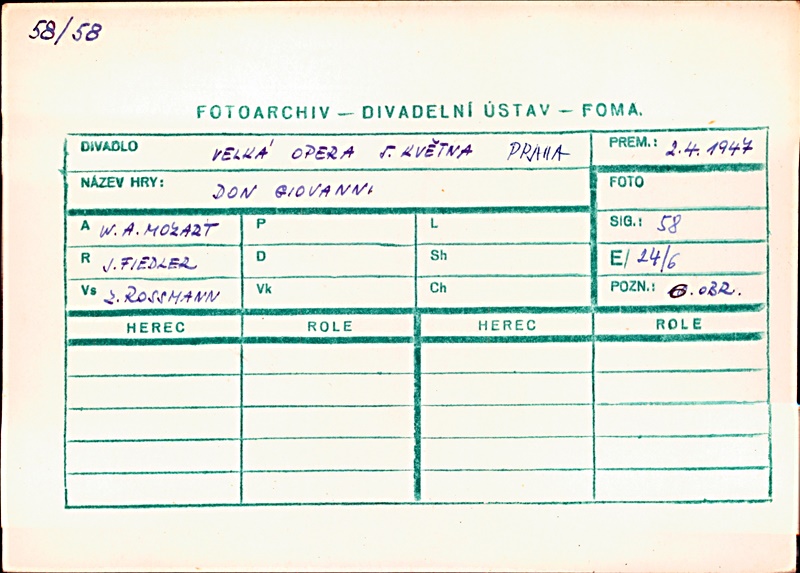 58/58
FOTOARCHIV — DIVADELNÍ ÚSTAV — FOMA.
DIVADLO VELKÁ OPERA 5. KVĚTNA PRAHA PREM.: 2.4.1947
NÁZEV HRY: DON GIOVANNI FOTO
A W. A. MOZART P L SIG.: 58
R J. FIEDLER D Sh E/ 24/6
Vs Z. ROSSMANN Vk Ch POZN.: 6. OBR.
HEREC ROLE HEREC ROLE